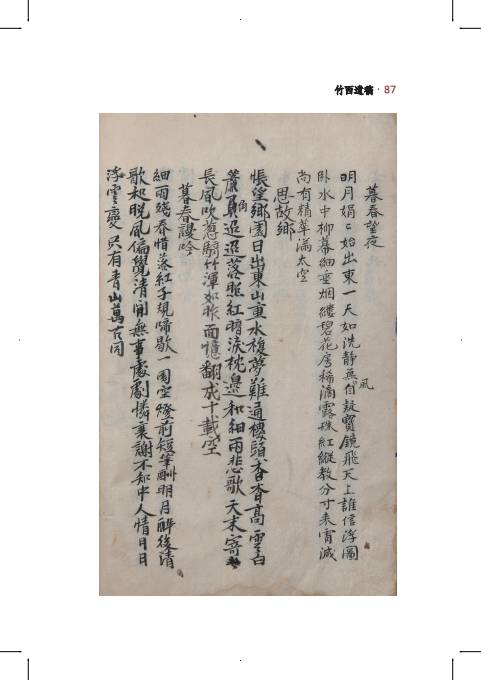 竹西遺稿 · 87
暮春望夜
明月娟〻始出東一天如洗靜無風自疑寶鏡飛天上誰信浮圖
卧水中柳幕細垂烟縷碧花房稀滴露珠紅縱敎分寸未宵減
尚有精華滿太空
思故鄉
悵望鄉園日出東山重水複夢難通樓頭杳杳高雲白
簾角迢迢落照紅暗淚枕邊和細雨悲歌天末寄
長風吹葱騎竹渾如昨面憶翻成十載空
暮春謾吟
細雨殘春惜落紅子規啼歇一園空燈前短筆酬明月醉後淸
歌和晩風偏覺淸閒無事處劇憐衰謝不知中人情日日
浮雲變只有靑山萬古同